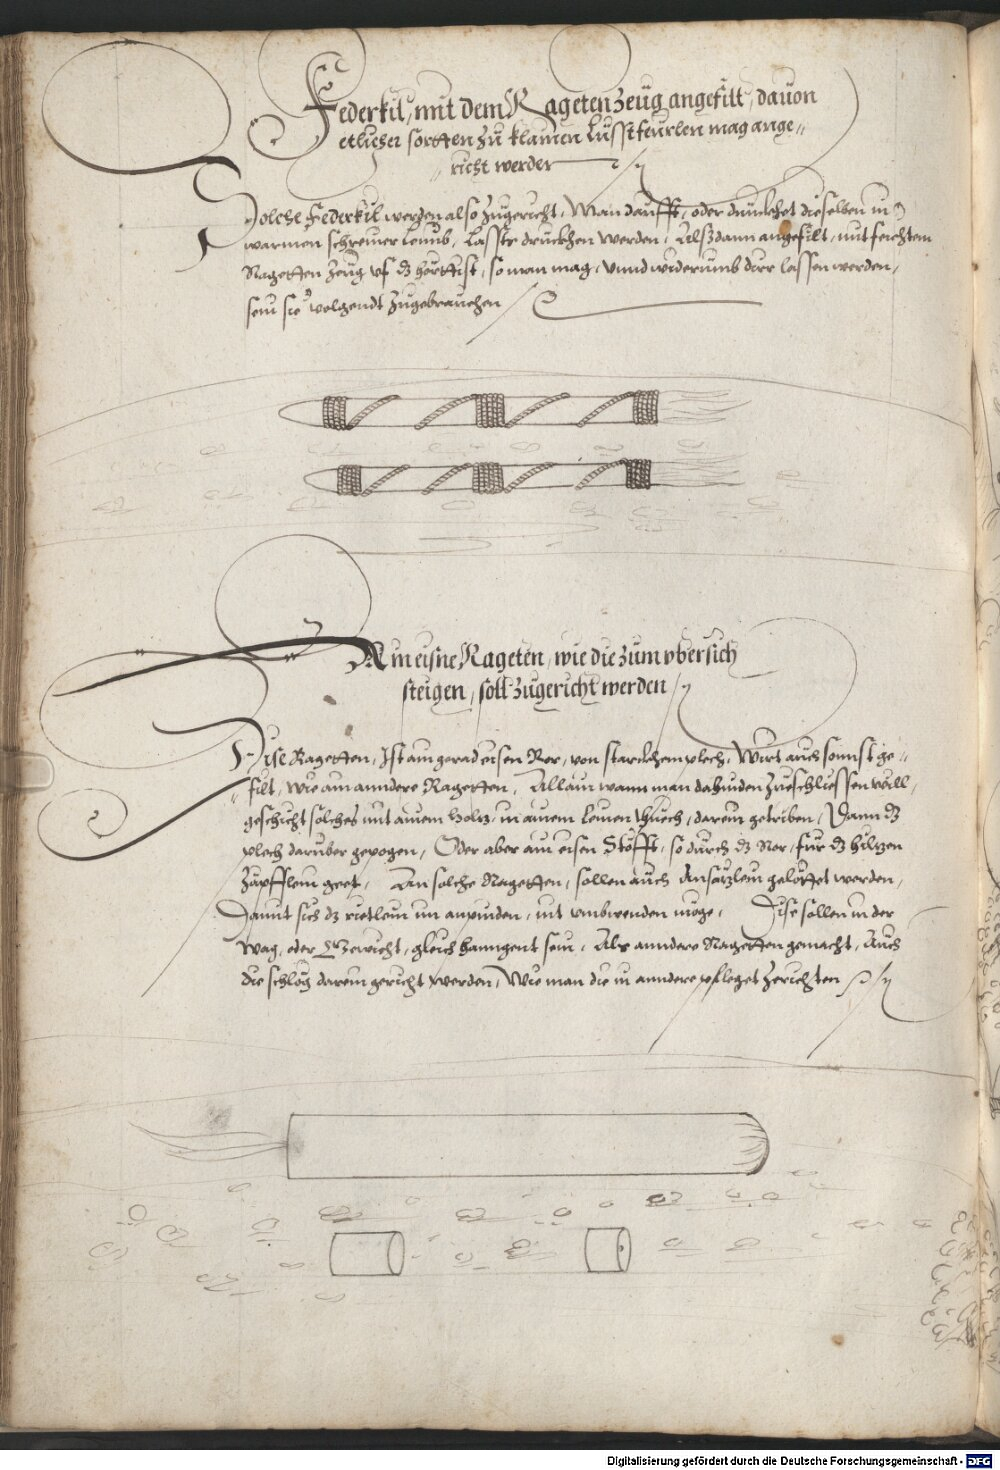 Federkil, mit dem Rageten Zeüg angefilt, dauon
etlicher sortten zu klainen Lusstfeurlen mag ange„
„richt werden
Solche Federkil werden also zůgericht, Man daufft, oder duncket dieselben in
warmen schreiner Leimb, Lasstr druckhen werden, Alßdann angefilt, mit feichtem
Ragetten Zeüg vf dz hörttist, so man mag, vnnd widerumb dirr lassen werden,
sein sie volgendt zůgebrauchen
Ain eisne Rageten, wie die zum vbersich
steigen, soll zůgericht werden
Dise Ragetten, Ist ain gerad eisen Ror, von starckhem plech, Wirt auch sonnst ge„
„filt, wie ain anndere Ragetten, Allain wann man dahinden zueschliessen will
geschicht solches mit ainem Holtz, in ainem Leimen thuech, darein getriben, Dann dz
plech daruber gepogen, Oder aber ain eisen Stöfft, so durch dz Ror, für dz hiltzen
Zäpfflein geet, An solche Ragetten, sollen auch Ansätzlein gelöttet werden,
Damit sich dz rietlein im anpinden, nit vmbwenden möge, Dise sollen in der
Wag, oder Gewicht, gleich hanngent sein, Als anndere Ragetten gemacht, Auch
die schlög darein gericht werden, Wie man die in anndere pfleget Zerichten
Digitalisierung gefördert durch die Deutsche Forschungsgemeinschaft - DFG